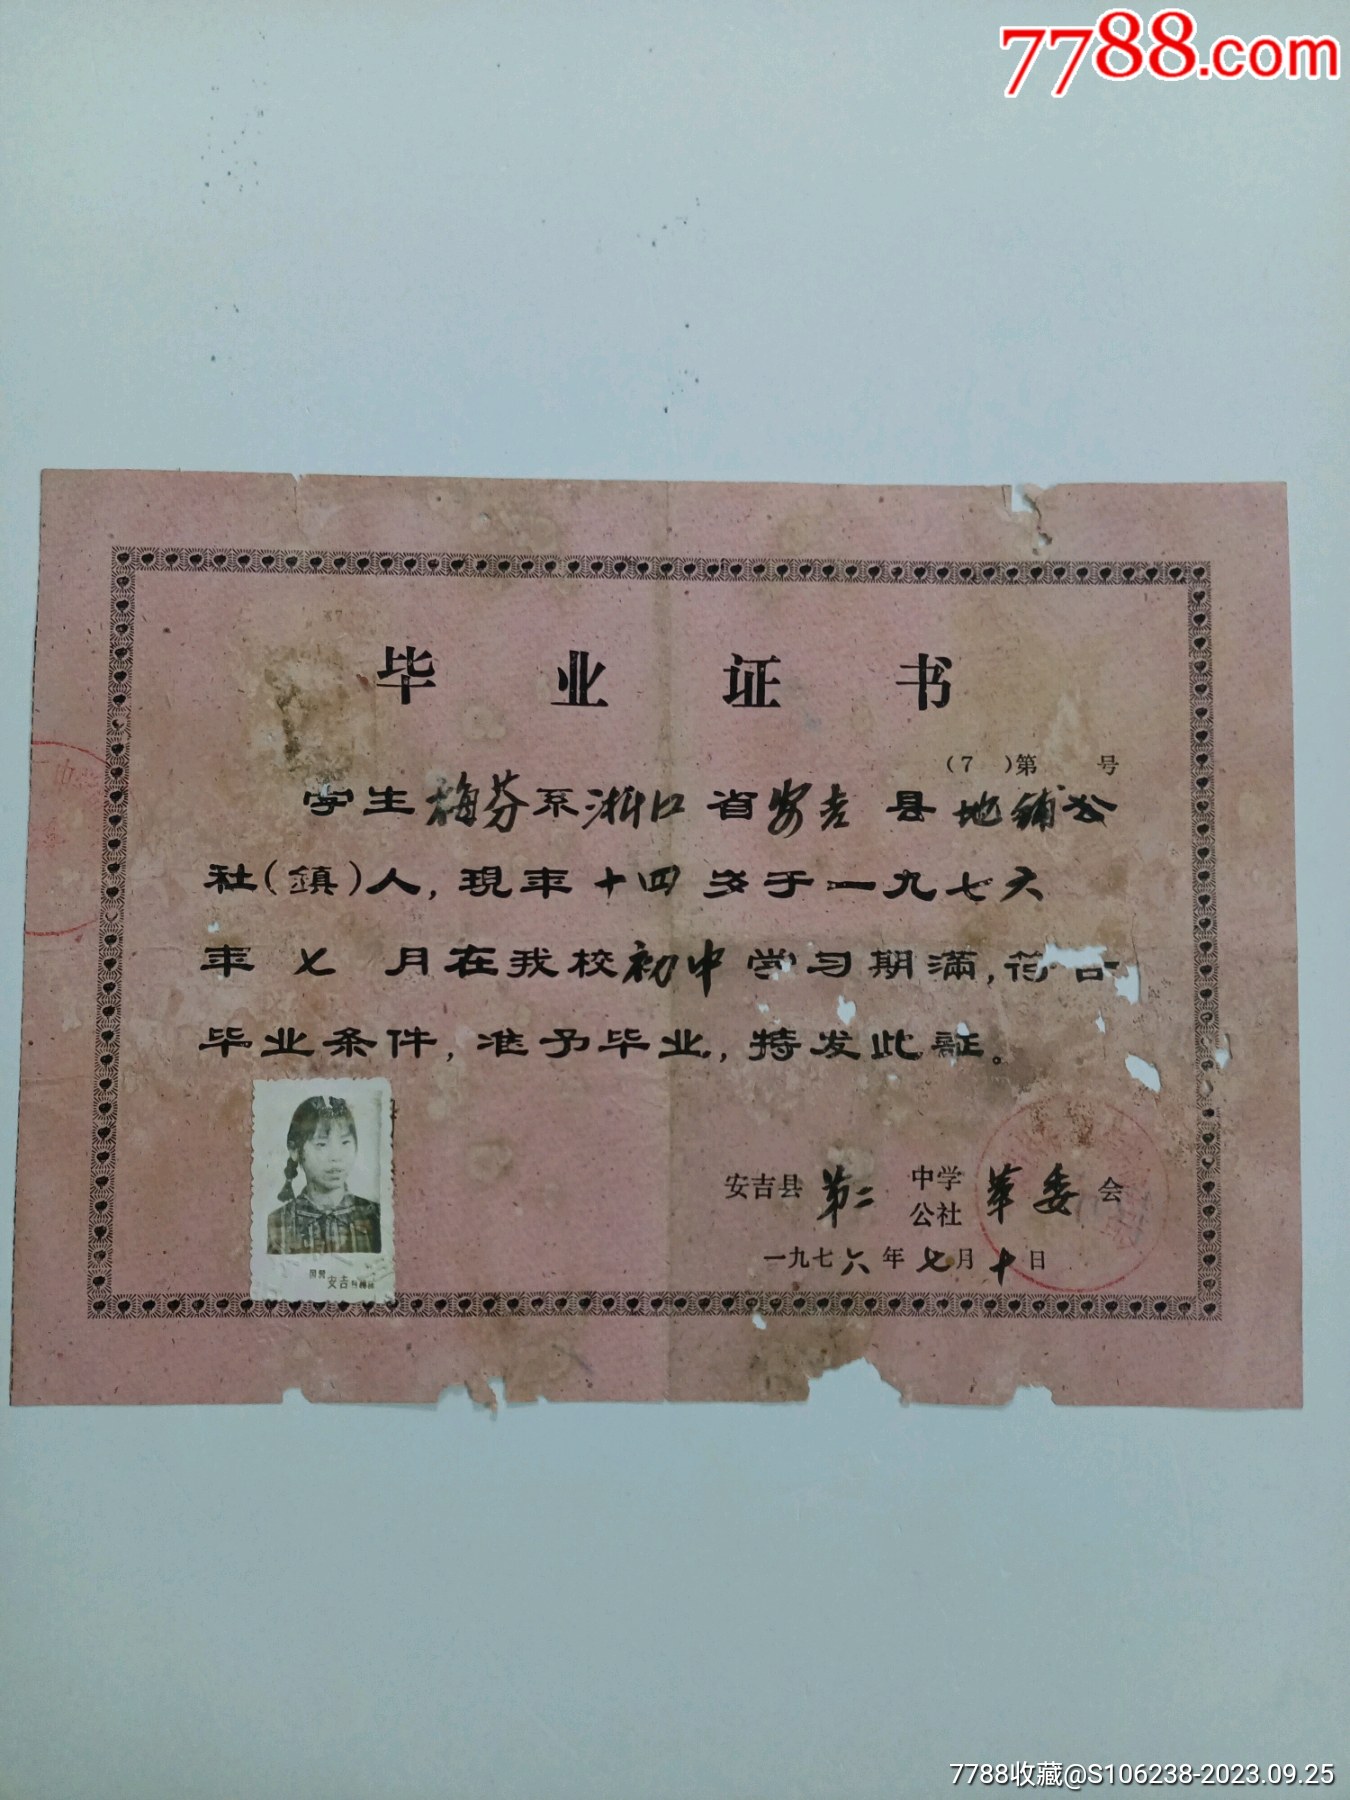 7788.com
毕业证书
(7 )第 号
学生梅芬系浙江省安吉县地铺公
社(鎮)人,現年十四岁于一九七六
年七月在我校初中学习期滿,符合
毕业条件,准予毕业,特发此証。
安吉县第二中学公社革委会
一九七六年七月十日
安吉
7788收藏@S106238-2023.09.25